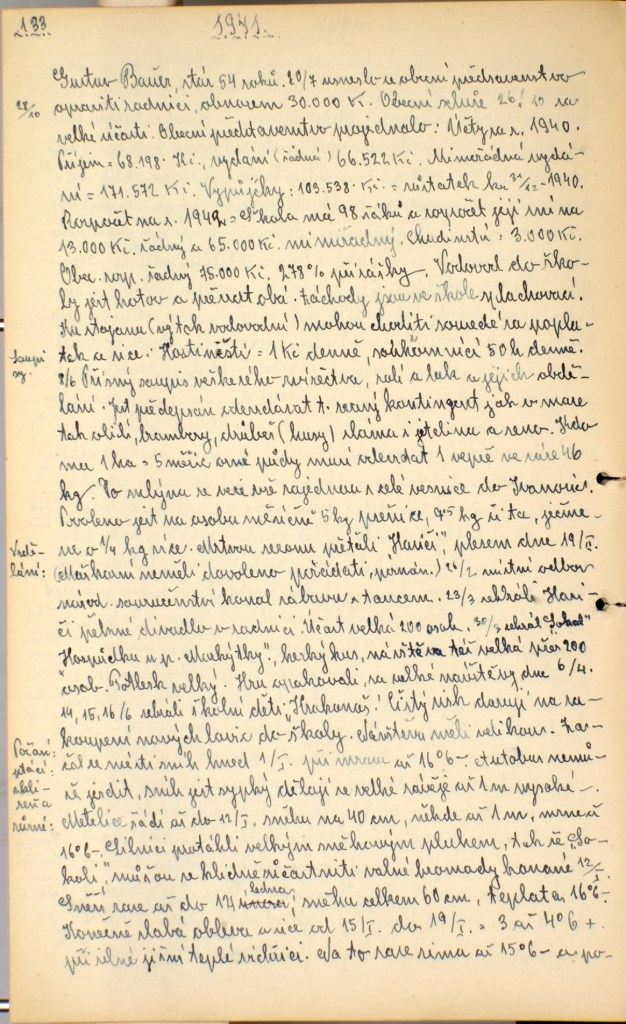 133
1941.
Gustav Bauer, stár 54 roků. 20/7 usneslo se obecní představenstvo
28/10
opraviti radnici, obnosem 30.000 K. Obecní schůze 26/ 10 za
velké účasti. Obecní představenstvo projednalo: Účty za r. 1940.
Příjem = 68.198 Kč., vydání (řádná) 66.522 Kč. Mimořádná vydá-
ní = 171.572 Kč. Výpůjčky: 103.538 Kč. = zůstatek ku 31/12 - 1940.
Rozpočet na r. 1942 = Škola má 98 žáků a rozpočet její zní na
13.000 Kč. řádný a 65.000 Kč. mimořádný. Chudinství: 3.000 Kč.
Obec. rozp. řádný 75.000 Kč. 278 % přirážky. Vodovod do ško-
ly jest hotov a převzat obcí. Záchody jsou ve škole splachovací.
Ku stojanu (výtok vodovodní) mohou choditi sousedé za popla-
tek a sice: Hostinští = 1 Kč denně, 50 h denně.
Soupi
sy.
8/6 Přísný soupis veškerého zvířectva, rolí a luk a jejich obdě-
lání. Jest předepsán odevzdávat t. zvaný kontingent jak v mase
tak obilí, brambory, drůbež (husy) sláma i jetelina a seno. Kdo
má 1 ha = 5 měřic orné půdy musí odevzdat 1 vepře ve váze 46
kg. Do mlýna se veze vše najednou z celé vesnice do Ivanovic.
Povoleno jest na osobu měsíčně 5 kg pšenice, 7.5 kg žita, ječme-
Vzdě-
lání:
ne o 1/4 kg více. Mrtvou sezonu přetáli "Hasiči", plesem dne 19/I.
(Maškarní neměli dovoleno pořádati, poznám.) 26/2. místní odbor
národ. souručenství konal zábavu s tancem. 23/3 sehráli Hasi-
či pěkné divadlo v radnici. Účast velká 200 osob. 30/3 sehrál "Sokol"
"Hospůdku u p. Matky", hezký kus, návštěva též velká přes 200
osob. Potlesk velký. Hru opakovali, za velké návštěvy, dne 6/4.
14, 15, 16/6 sehráli školní děti "Krakonoš". Čistý zisk darují na za-
koupení nových lavic do školy. Návštěvu měli velikou. Za-
Počasí
ptáci
sklí-
zeň a
různé:
čal se městi sníh hned 1/I. při mrazu až 16°C -. Autobus nemů-
že jezdit, sníh jest sypký dělají se velké závěje až 1 m vysoké -.
Metelice řádí až do 12/I. sněhu na 40 cm, někde až 1 m, mrazů
16°C -. Silnici protáhli velkým sněhovým pluhem, tak že "So-
koli" můžou se klidně zúčastniti valné hromady konané 12/I.
Sněží zase až do 14 ledna, sněhu celkem 60 cm, teplota 16°C -.
Konečně slabá obleva a sice od 15/I. do 19/I. = 3 až 4°C +.
při silné jižní teplé vichřici. Na to zase zima až 15°C - a po-